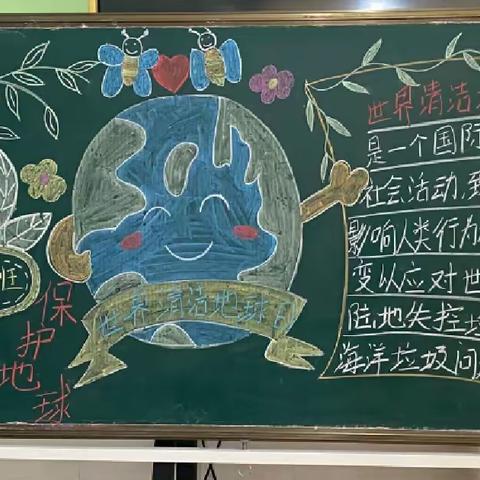 世界清洁
是一个国际
社会活动,
影响人类行为
变以应对世
陆地失控垃
海洋垃圾问
世界清洁地球日
保护地球
班